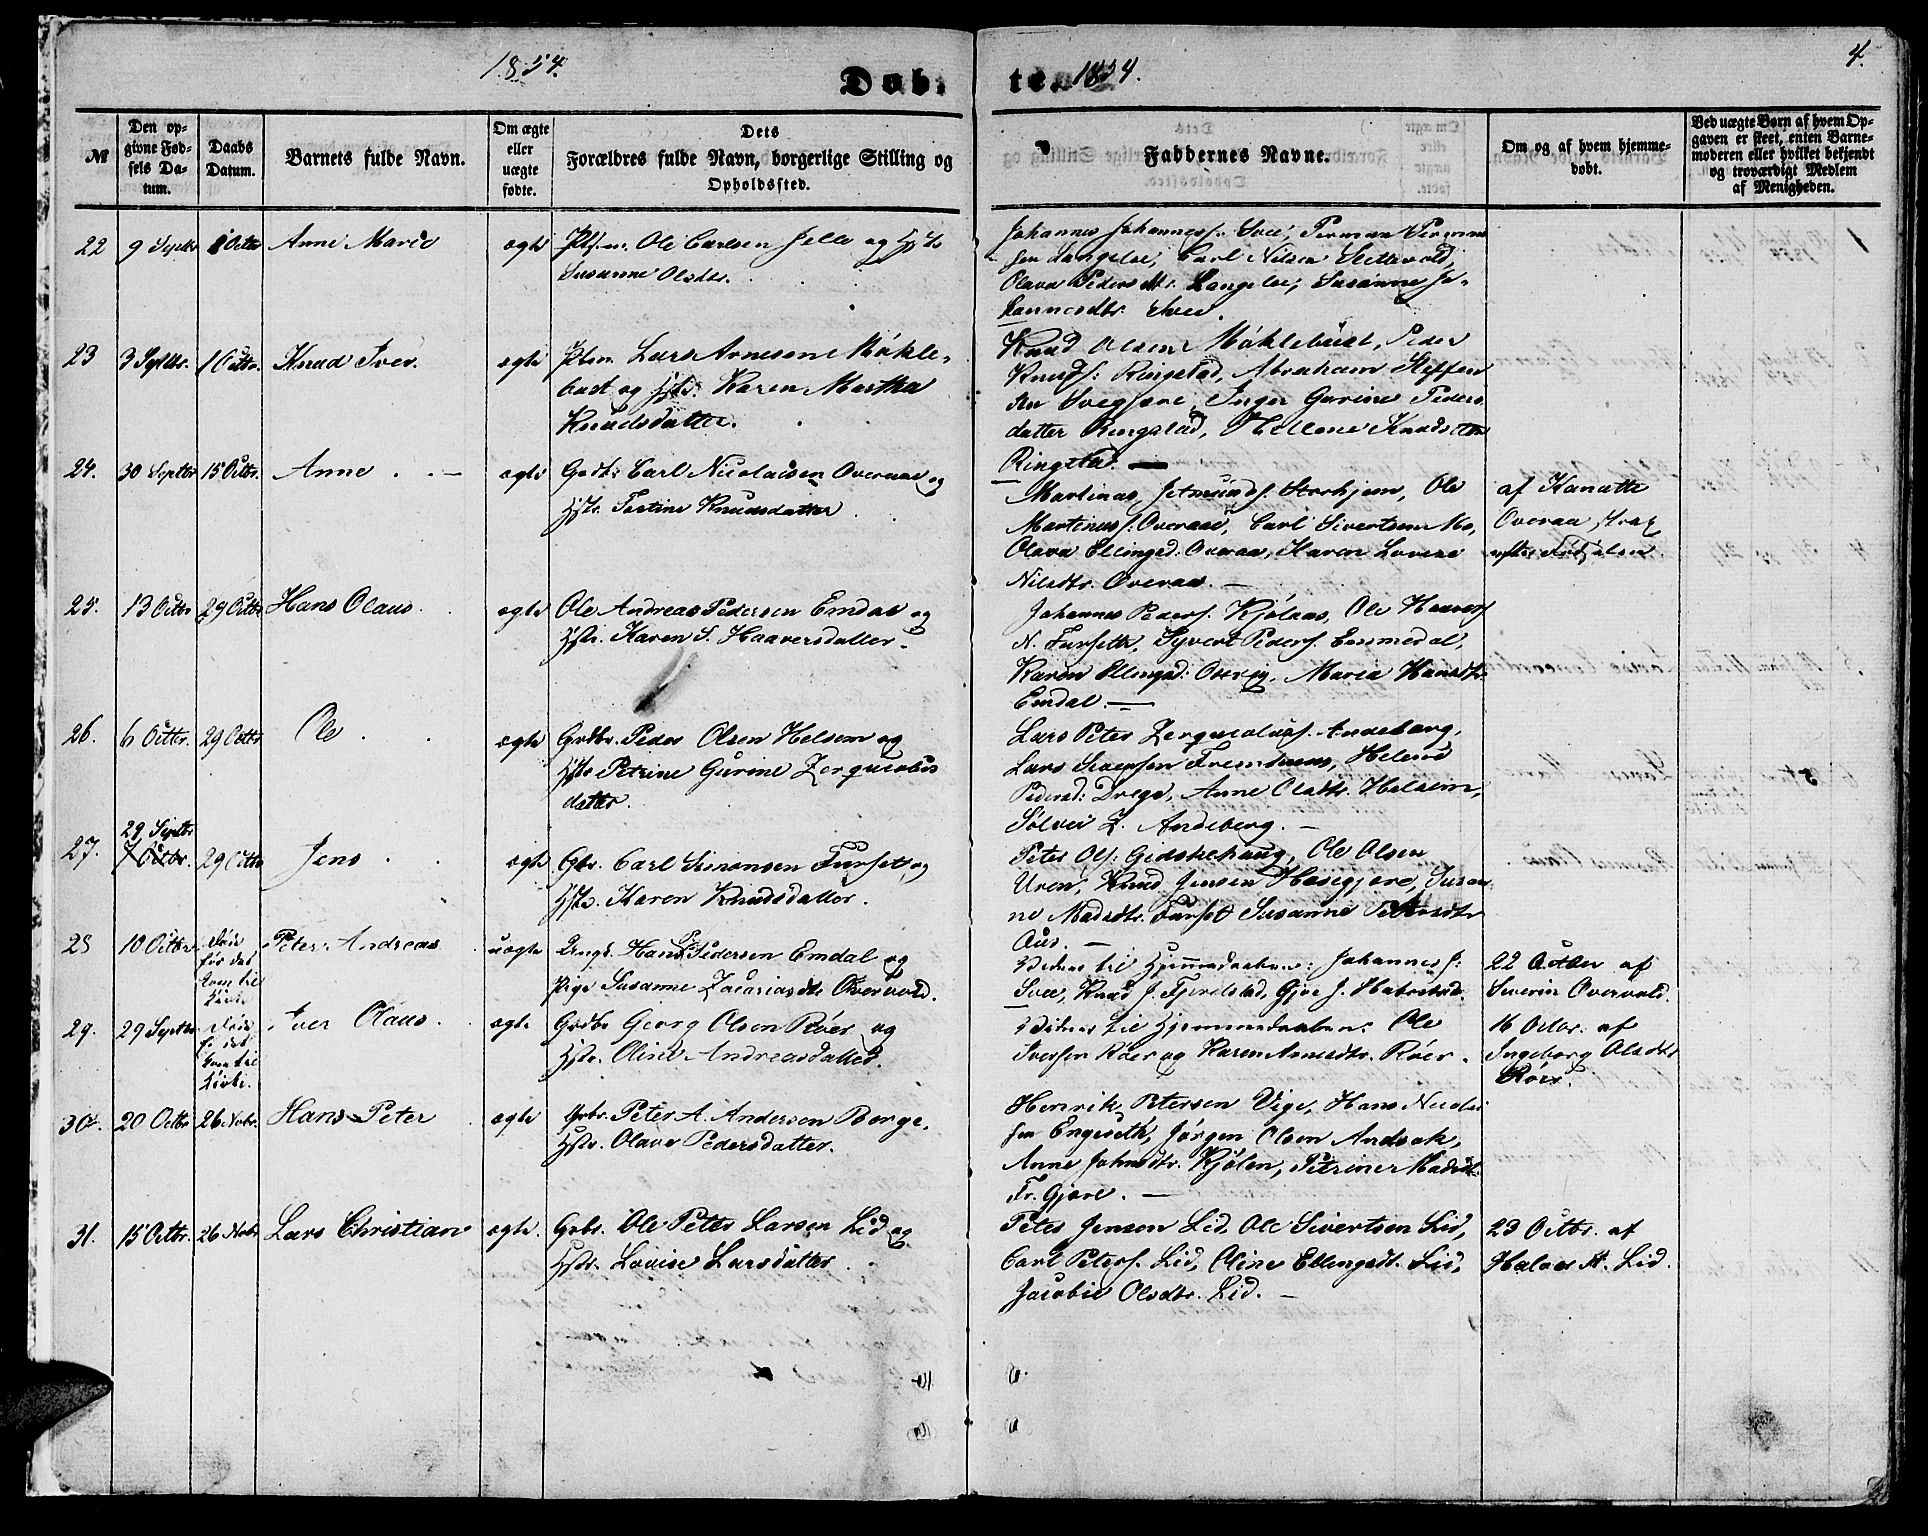 1854.
Døb-
te. 1854.
4.
№
Den op-
givne Fød-
sels Da-
tum.
Daabs
Datum.
Barnets fulde Navn.
Om ægte
eller
uægte
fødte.
Dets
Forældres fulde Navn, borgerlige Stilling og
Opholdssted.
Faddernes Navne.
Om og af hvem hjemme-
døbt.
Ved uægte Børn af hvem Op-
gaven er skeet, enten Barne-
moderen eller hvilket bekjendt
og troværdigt Medlem
af Menigheden.
22 9 Septbr 1 Octbr Anne Marie ægte Ole Carlsen Jelle og Hst
Susanne Olsdtr.
Johannes Johannesf. Svee, Perman Perman
sen Langelee, Carl Nilsen Slettevold,
Olava Pedersdtr. Langelee, Susanne Jo-
hannesdtr. Svee.
23 3 Septbr. 1 Octbr. Knud Iver. ægte Lars Arnesen Møkle-
bust og Hst. Karen Martha
Knudsdatter.
Knud Olsen Møklebust, Peder
Knudf: Ringstad, Abraham Steffen
sen Svegjøre, Inger Gurine Peders
datter Ringstad, Hellene Knudsdtr
Ringstad. —
24. 30 Septbr 15 Octbr. Anne ægte Grdb: Carl Nicolaisen Overaae og
Hstr. Sertine Knudsdatter
Martinus Jetmundf. Storhjem, Ole
Martinusf. Overaae, Carl Sivertsen Mo,
Olava Ellingsd. Overaa, Karen Lovise
Nilsdtr. Overaae. —
af Kanutte
Overaa strax
efter Fødselen.
25. 13 Octbr 29 Octbr Hans Olaus. ægte Ole Andreas Pedersen Emdal og
Hstr. Karen S. Haaversdatter.
Johannes Pedersf. Kjølaas, Ole Haaversf
N. Furseth, Syvert Pedersf. Emmedal,
Karen Ellingsd: Overvig, Maria Hansdtr
Emdal. —
26. 6 Octbr. 29 Octbr Ole ægte Grdbr. Peder Olsen Helsem og
Hstr Petrine Gurine Zerquoelus
datter.
Lars Peter Zerquoelusf. Andeberg,
Lars Seversen Fremsnes, Helene
Pedersd: Drege, Anne Olsdtr. Helsem,
Sølvei Z. Andeberg. —
27. 29 Septbr
7 Octbr. 29 Octbr Jens ægte Gbr. Carl Simonsen Furset, og
Hstr. Karen Knudsdatter.
Peter Ols: Gidskehaug, Ole Olsen
Uren, Knud Jensen Hesegjøre, Susan
ne Madsdtr. Furset Susanne Petersdtr
Aus. —
28 10 Octbr Døde
før det
kom til
Kirke Peter Andreas uægte Ungk. Hans P Pedersen Emdal og
Pige Susanne Zacariasdtr Overvold.
Vidner til Hjemmedaaben: Johannes J:
Svee, Knud J. Fjerdstad, Gjøe J. Habostad.
22 Octbr af
Severin Overvold.
29. 29 Septbr Døde
f. det
kom til
Kirke. Iver Olaus. ægte Grdbr Georg Olsen Røer og
Hstr. Oline Andreasdatter.
Vidner til Hjemmedaaben: Ole
Iversen Røer og Karen Arnesdtr. Røer.
16 Octbr. af
Ingeborg Olsdtr
Røer.
30. 20 Octbr 26 Novbr. Hans Peter ægte Grbr. Peter A. Andersen Berge,
Hstr. Olave Pedersdatter.
Henrik Petersen Vige, Hans Nicolai
sen Engeseth, Jørgen Olsen Andsok,
Anne Johnsdtr. Kjølen, Petrine Madsd.
Fr. Gjøre. —
31. 15 Octbr. 26 Novbr Lars Christian ægte. Grbr. Ole Peter Larsen Lid og
Hstr. Lovise Larsdatter.
Peter Jenson Lid, Ole Sivertsen Lid,
Carl Petersf. Lid, Oline Ellingsdt. Lid,
Jacobie Olsdtr. Lid. —
23 Octbr. af
Halvor A. Lid.